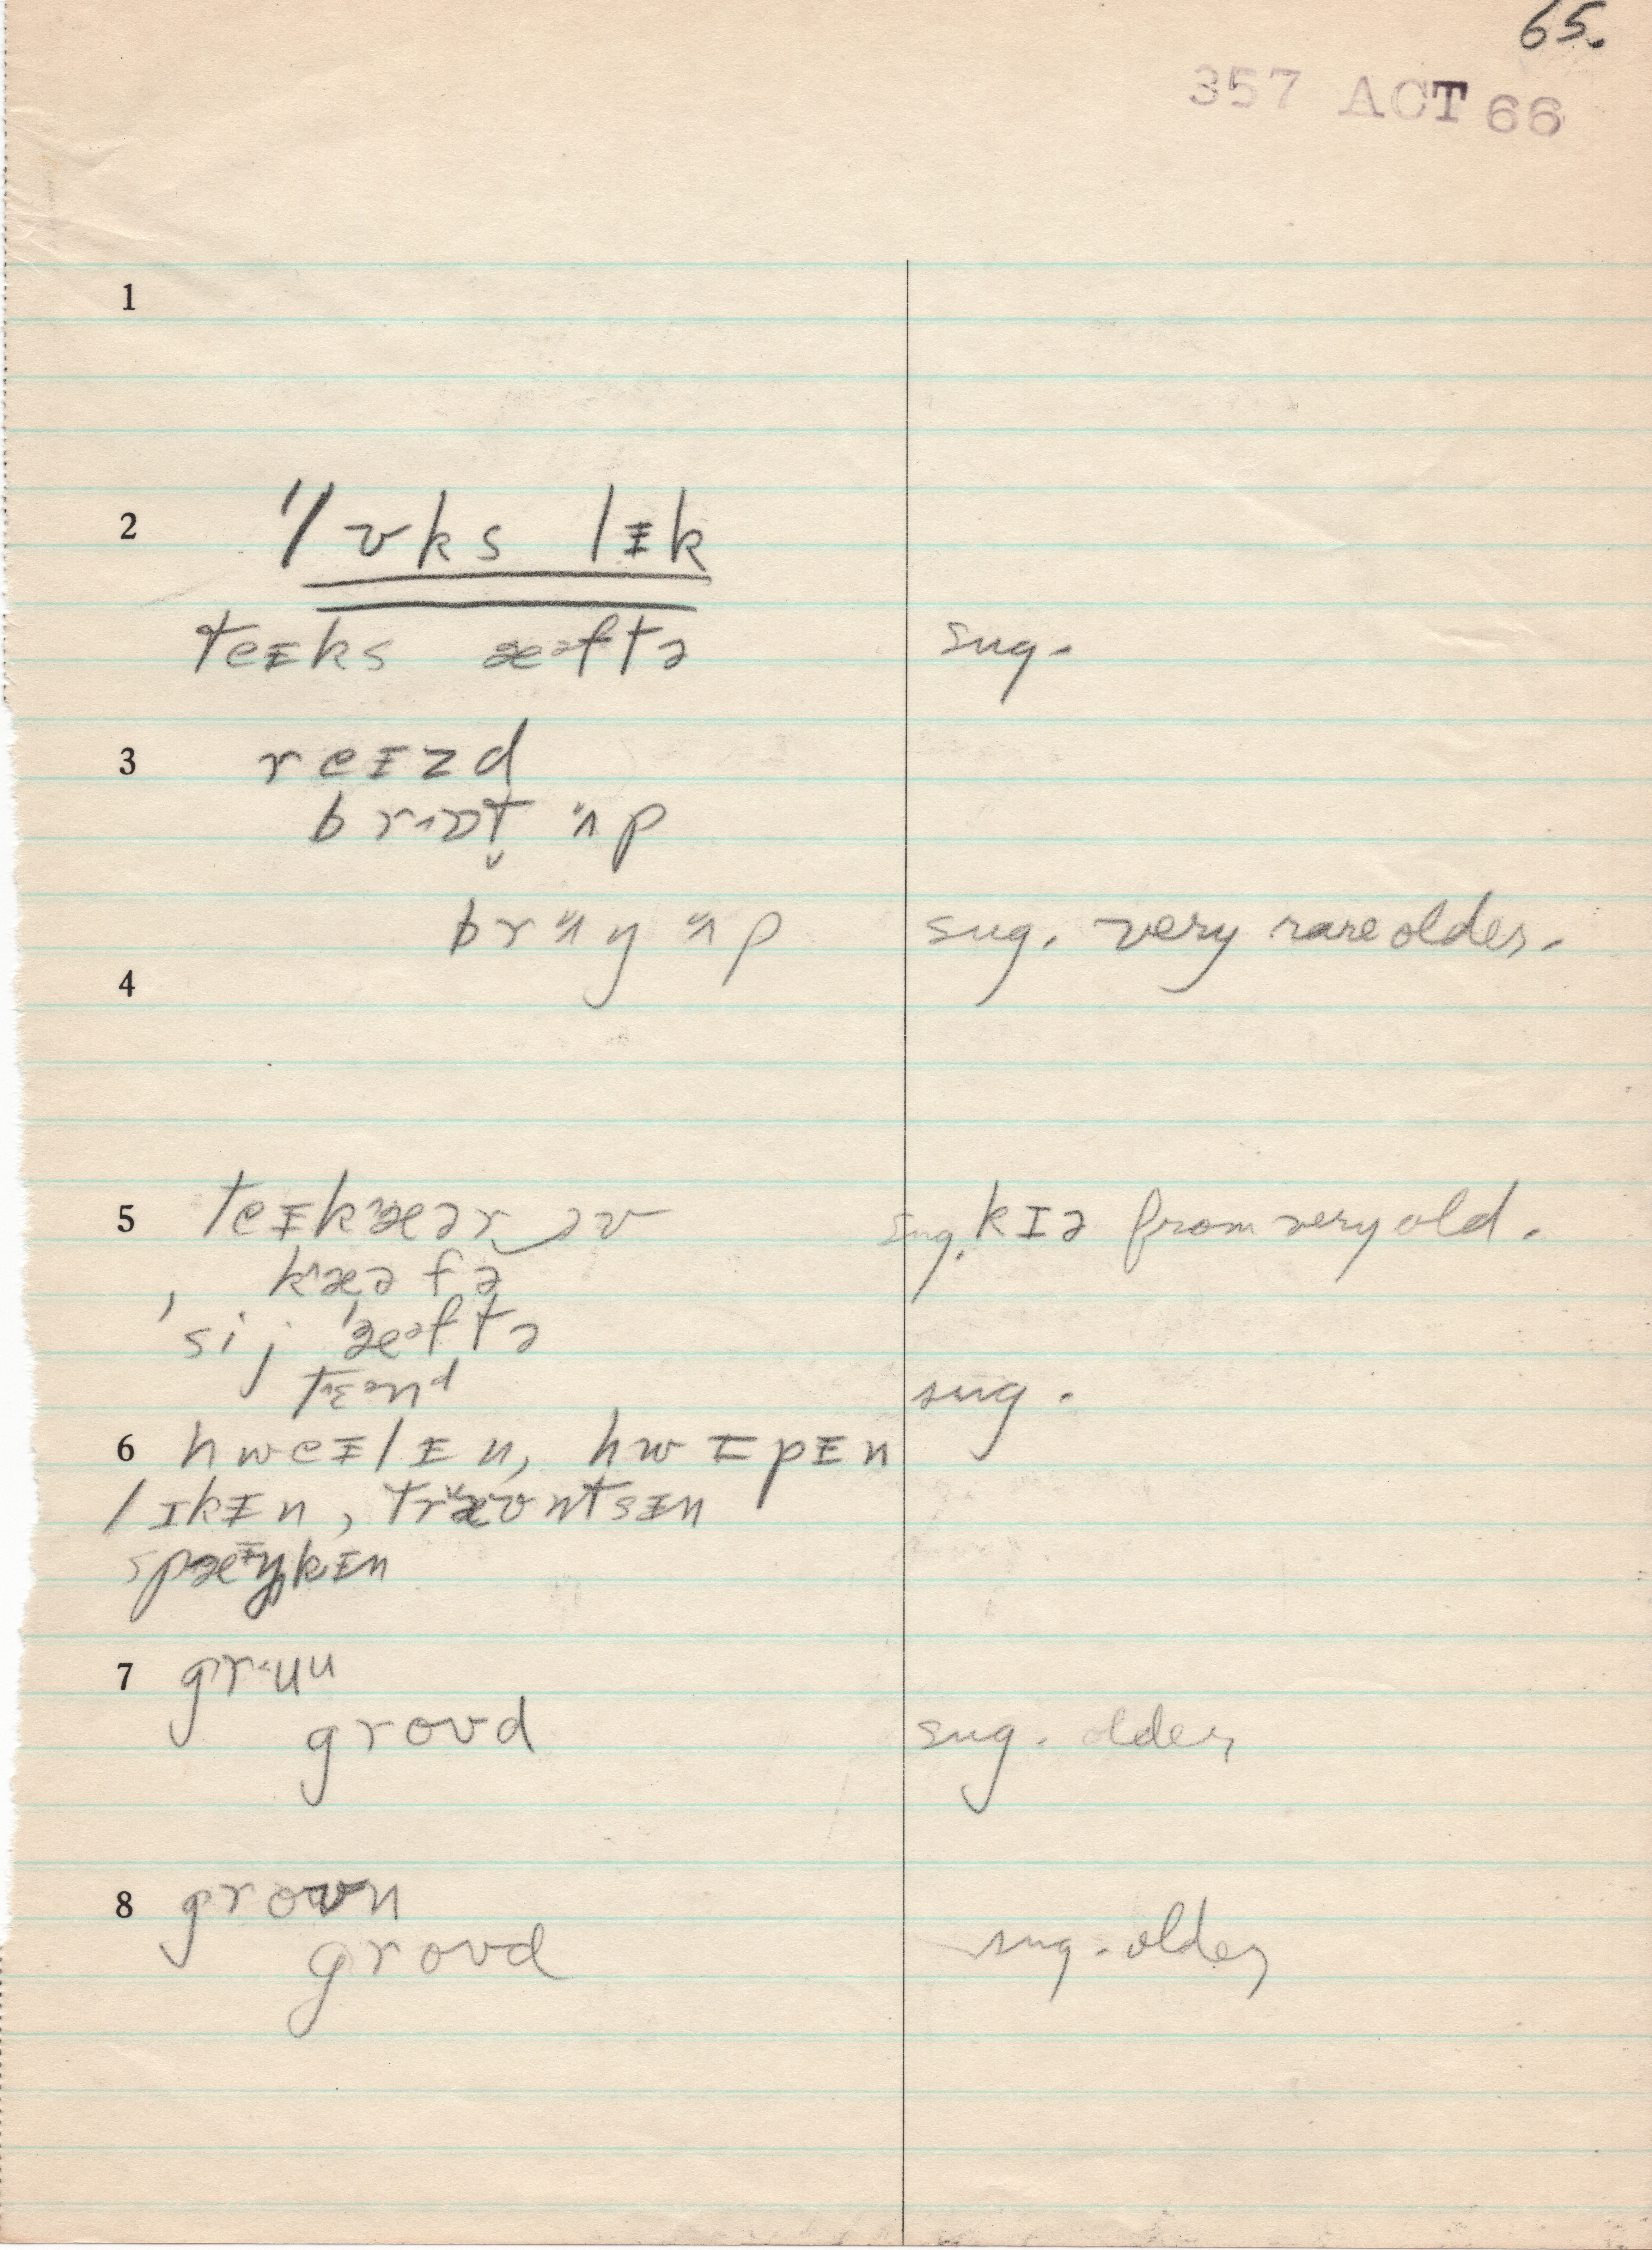 65.
357 ACT 66
1
2 ˈlʊks lᵻk
teᵻks æᵊftə sug.
3 reᵻzd
brɔt ʌp
brʌŋ ʌp sug. very rare older.
4
5 teᵻkæər əv sug. kɪə from very old.
kæə fə
ˈsij ˈæᵊftə
tɛənᵈ sug.
6 hweᵻlᵻn, hwᵻpᵻn
lɪkᵻn, træʊntsᵻn
spæᵻŋkᵻn
7 gruᵘ
groʊd sug. older
8 groʊn
groʊd sug. older